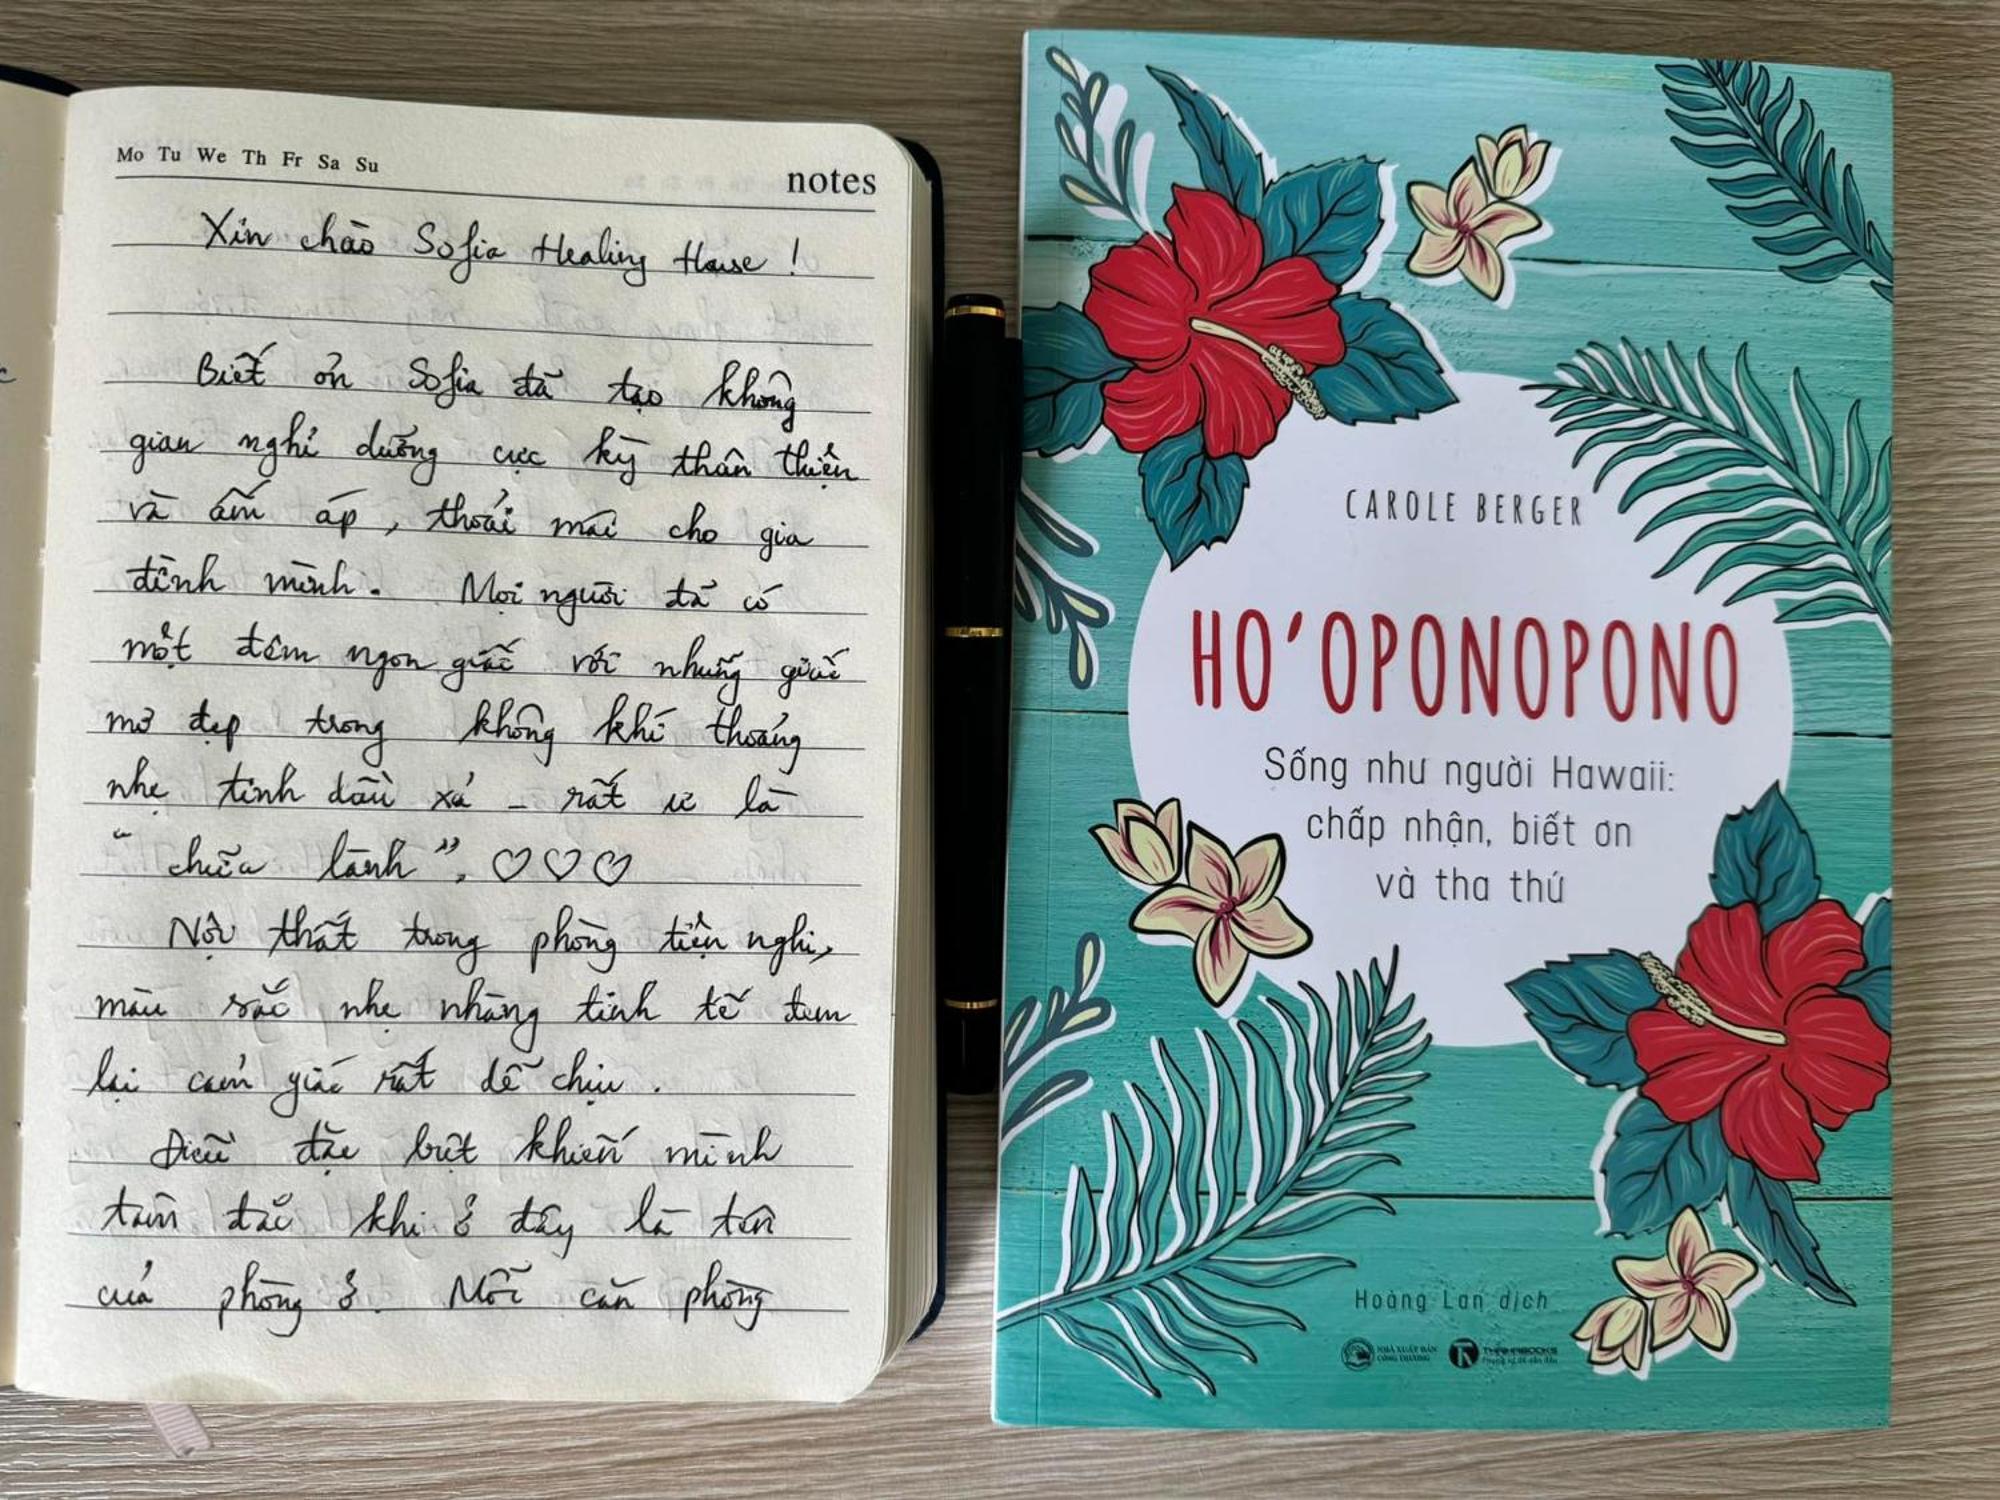 Mo Tu We Th Fr Sa Su
notes
Xin chào Sofia Healing House !
Biết ơn Sofia đã tạo không
gian nghỉ dưỡng cực kỳ thân thiện
và ấm áp, thoải mái cho gia
đình mình. Mọi người đã có
một đêm ngon giấc với những giấc
mơ đẹp trong không khí thoảng
nhẹ tinh dầu xả - rất ư là
“chữa lành”. ♡♡♡
Nội thất trong phòng tiện nghi,
màu sắc nhẹ nhàng tinh tế đem
lại cảm giác rất dễ chịu.
Điều đặc biệt khiến mình
tâm đắc khi ở đây là tên
của phòng ở. Mỗi căn phòng
CAROLE BERGER
HO'OPONOPONO
Sống như người Hawaii:
chấp nhận, biết ơn
và tha thứ
Hoàng Lan dịch
NHÀ XUẤT BẢN
CÔNG THƯƠNG
THAIHABOOKS